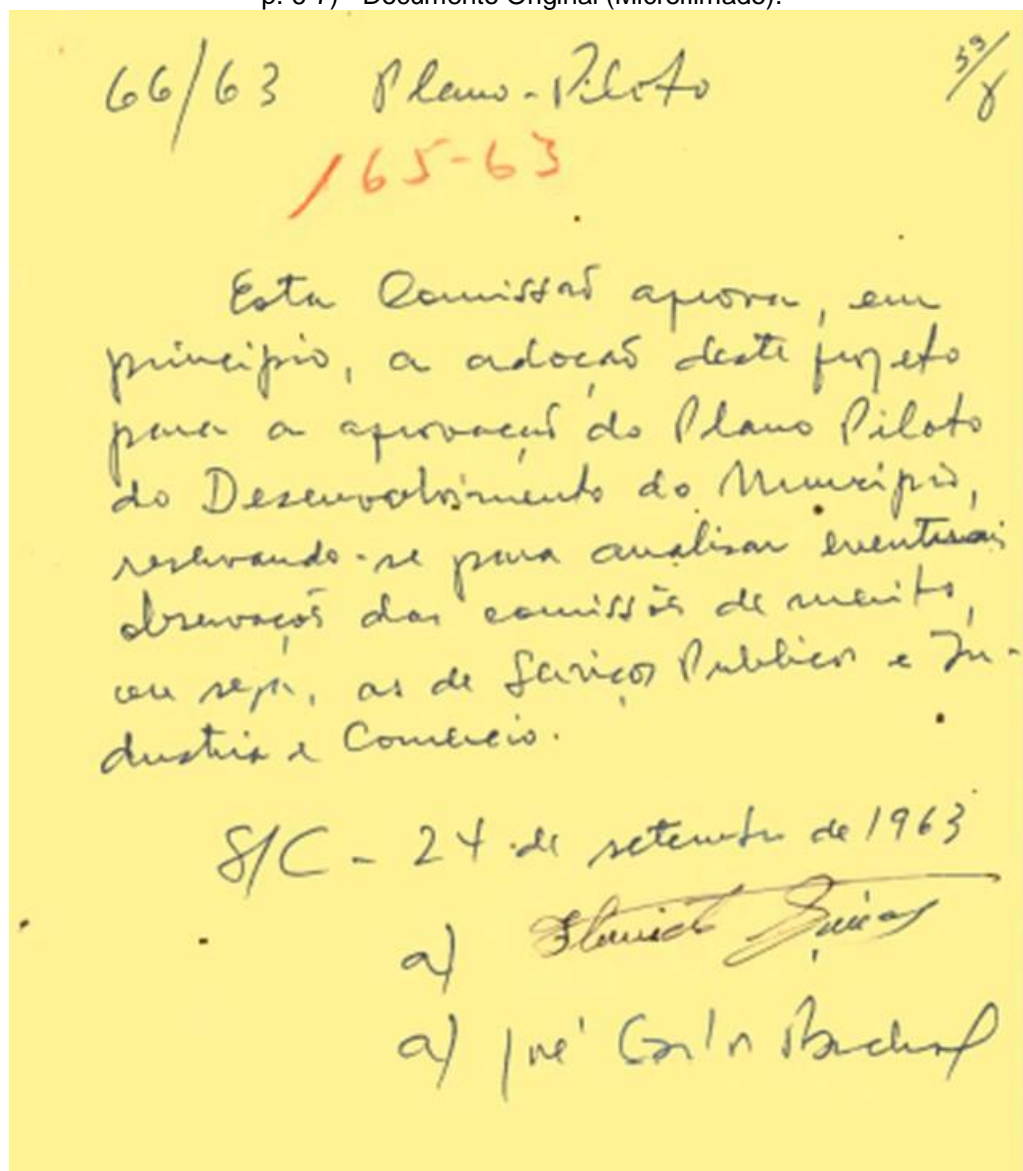 p. 6-7) - Documento Original (Microfilmado).
66/63 Plano-Piloto 59/
165-63
Esta Comissão aprova, em
princípio, a adoção deste projeto
para a aprovação do Plano Piloto
do Desenvolvimento do Município,
reservando-se para analisar eventuais
observações das comissões de merito,
ou seja, as de Serviços Publicos e In-
dustria e Comercio.
S/C - 24 de setembro de 1963
a)
a) José Carlos